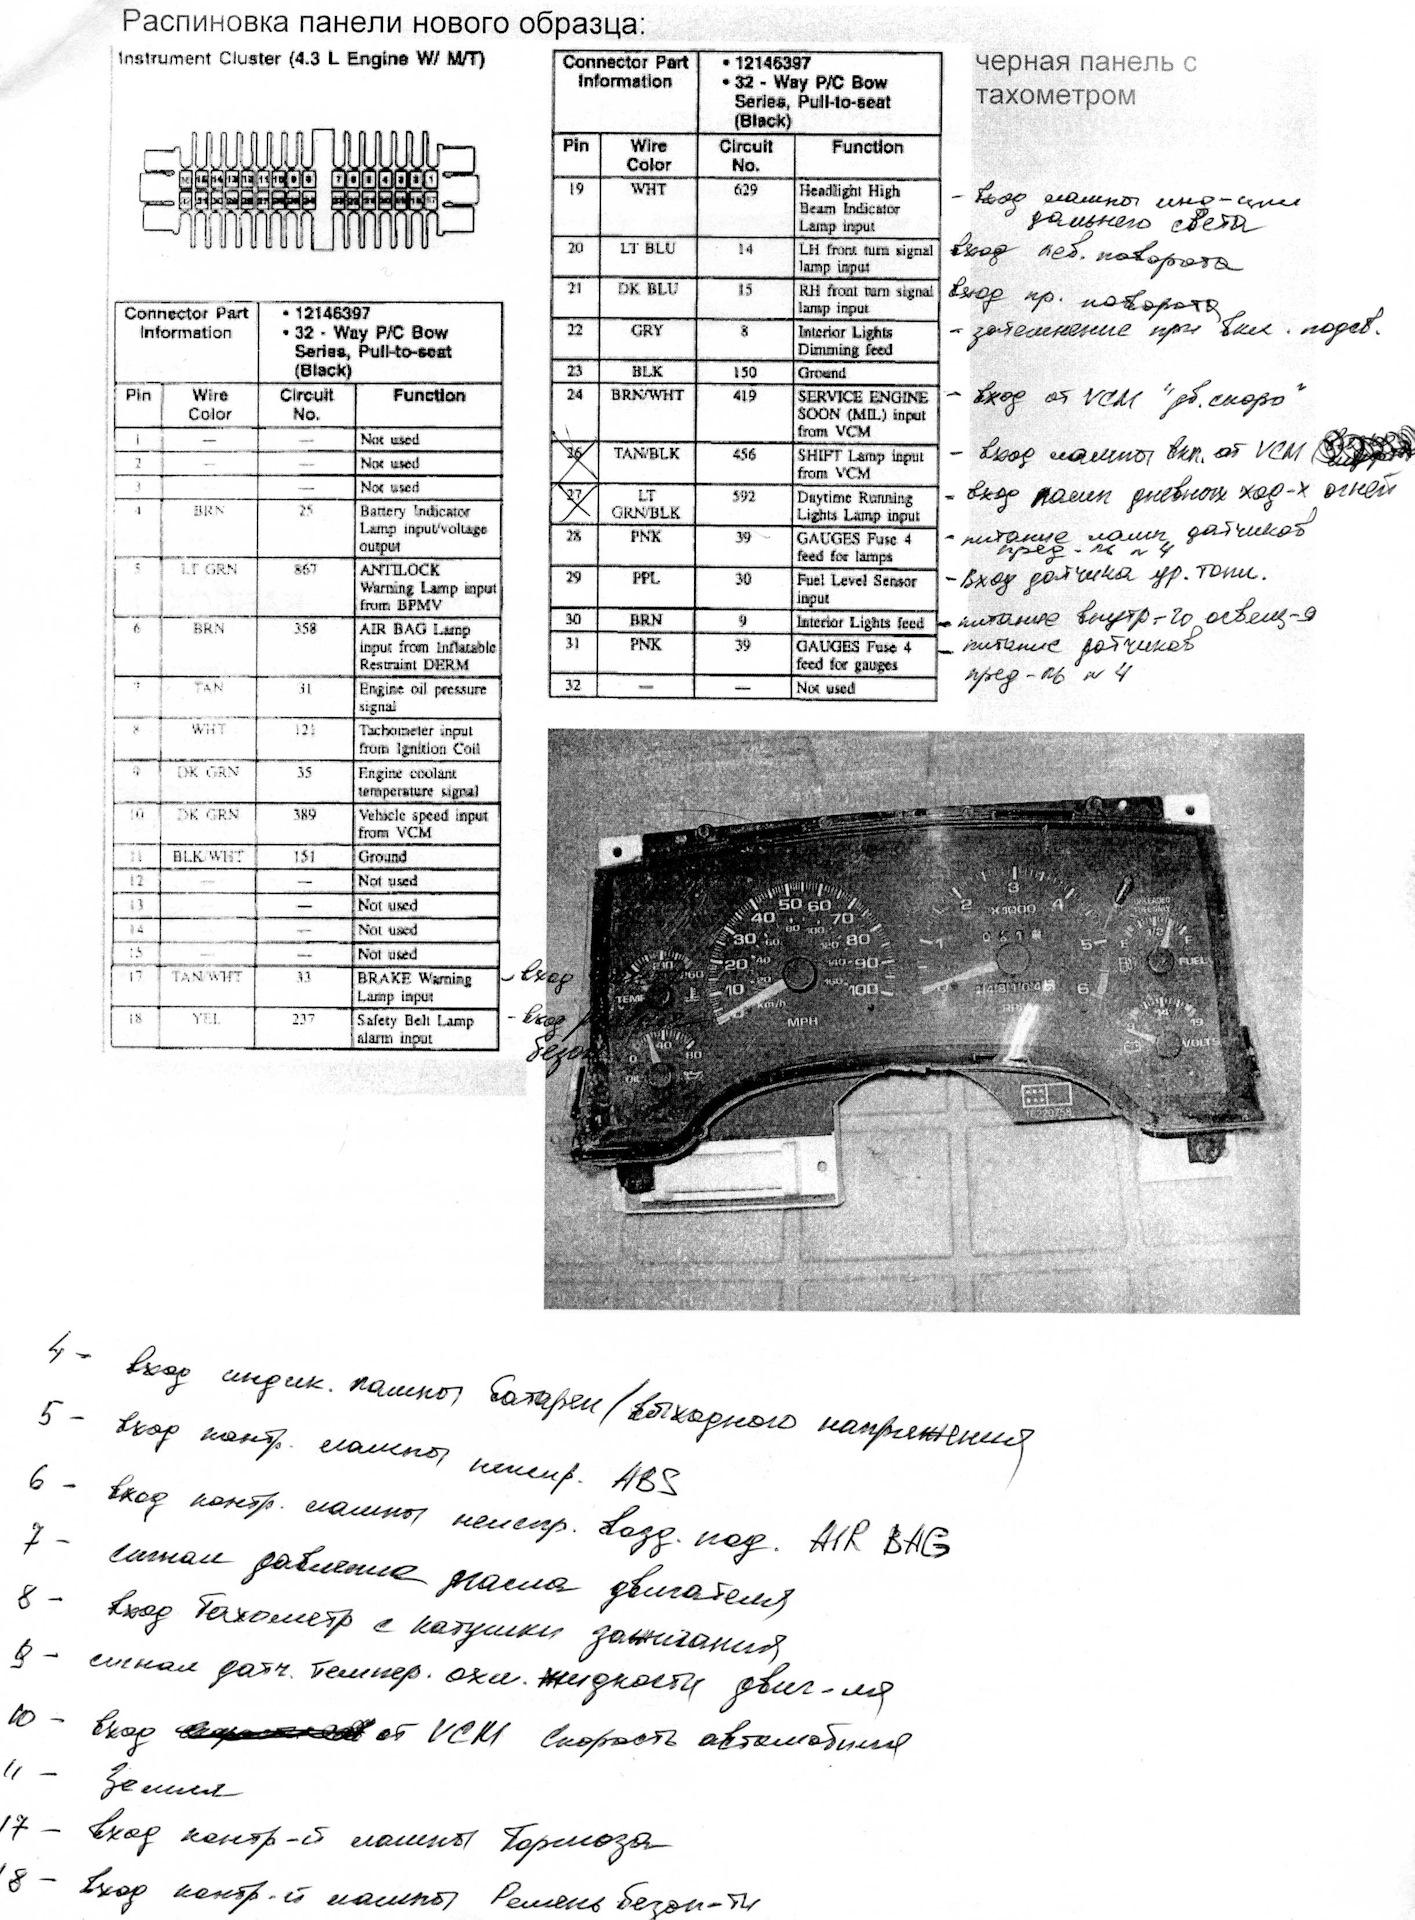 Распиновка панели нового образца:
Instrument Cluster (4.3 L Engine W/ M/T)
Connector Part Information
• 12146397
• 32 - Way P/C Bow Series, Pull-to-seat (Black)
Pin Wire Color Circuit No. Function
1 — — Not used
2 — — Not used
3 — — Not used
4 BRN 25 Battery Indicator Lamp input/voltage output
5 LT GRN 867 ANTILOCK Warning Lamp input from BPMV
6 BRN 358 AIR BAG Lamp input from Inflatable Restraint DERM
7 TAN 31 Engine oil pressure signal
8 WHT 121 Tachometer input from Ignition Coil
9 DK GRN 35 Engine coolant temperature signal
10 DK GRN 389 Vehicle speed input from VCM
11 BLK/WHT 151 Ground
12 — — Not used
13 — — Not used
14 — — Not used
15 — — Not used
17 TAN/WHT 33 BRAKE Warning Lamp input
- вход
18 YEL 237 Safety Belt Lamp alarm input
- вход
безоп
Connector Part Information
• 12146397
• 32 - Way P/C Bow Series, Pull-to-seat (Black)
Pin Wire Color Circuit No. Function
19 WHT 629 Headlight High Beam Indicator Lamp input
- вход лампы инд-ции
дальнего света
20 LT BLU 14 LH front turn signal lamp input
вход лев. поворота
21 DK BLU 15 RH front turn signal lamp input
вход пр. поворота
22 GRY 8 Interior Lights Dimming feed
- затемнение при вкл. подсв.
23 BLK 150 Ground
24 BRN/WHT 419 SERVICE ENGINE SOON (MIL) input from VCM
- вход от VCM "дв. скоро"
26 TAN/BLK 456 SHIFT Lamp input from VCM
- вход лампы вкл. от VCM
27 LT GRN/BLK 592 Daytime Running Lights Lamp input
- вход ламп дневных ход-х огней
28 PNK 39 GAUGES Fuse 4 feed for lamps
- питание ламп датчиков
пред-ль № 4
29 PPL 30 Fuel Level Sensor input
- Вход датчика ур. топл.
30 BRN 9 Interior Lights feed
- питание внутр-го освещ-я
31 PNK 39 GAUGES Fuse 4 feed for gauges
- питание датчиков
пред-ль № 4
32 — — Not used
черная панель с
тахометром
10 20 30 40 50 60 70 80 90 100
km/h
MPH
1 2 3 4 5 6
X1000
TEMP
OIL
0 40 80
UNLEADED
E 1/2 F
FUEL
14 19
VOLTS
4 - вход индик. лампы батареи/выходного напряжения
5 - вход контр. лампы неиспр. ABS
6 - вход контр. лампы неиспр. возд. под. AIR BAG
7 - сигнал давления масла двигателя
8 - вход Тахометр с катушки зажигания
9 - сигнал датч. темпер. охл. жидкости двиг-ля
10 - вход от VCM Скорость автомобиля
11 - Земля
17 - вход контр-й лампы Тормоза
18 - вход контр-й лампы Ремень безоп-ти